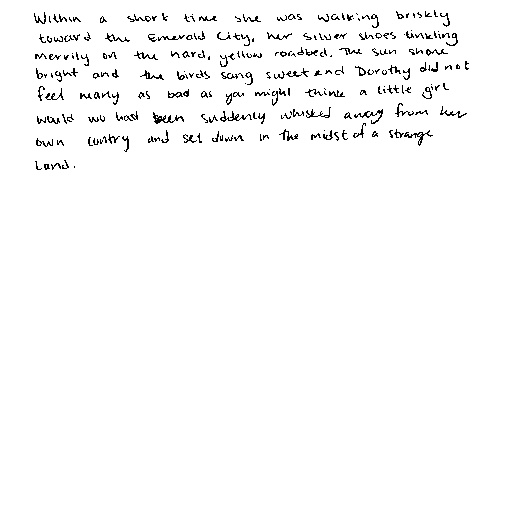 Within a short time she was walking briskly
toward the Emerald City, her silver shoes tinkling
merrily on the hard, yellow roadbed. The sun shone
bright and the birds sang sweet and Dorothy did not
feel nearly as bad as you might think a little girl
would who had been suddenly whisked away from her
own contry and set down in the midst of a strange
land.